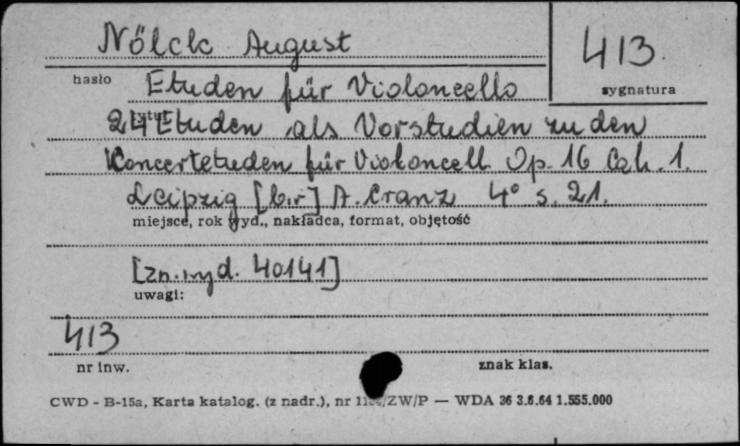 Nölck August
413
hasło Etuden für Violoncello
sygnatura
24 Etuden als Vorstudien zu den
Koncertetuden für Violoncell Op. 16 Czh. 1.
Leipzig [b.r] A. Cranz 4° s. 21.
miejsce, rok wyd., nakładca, format, objętość
[zn. wyd. 40141]
uwagi:
413
nr inw.
znak klas.
CWD - B-15a, Karta katalog. (z nadr.), nr /ZW/P — WDA 36 3.6.64 1.555.000